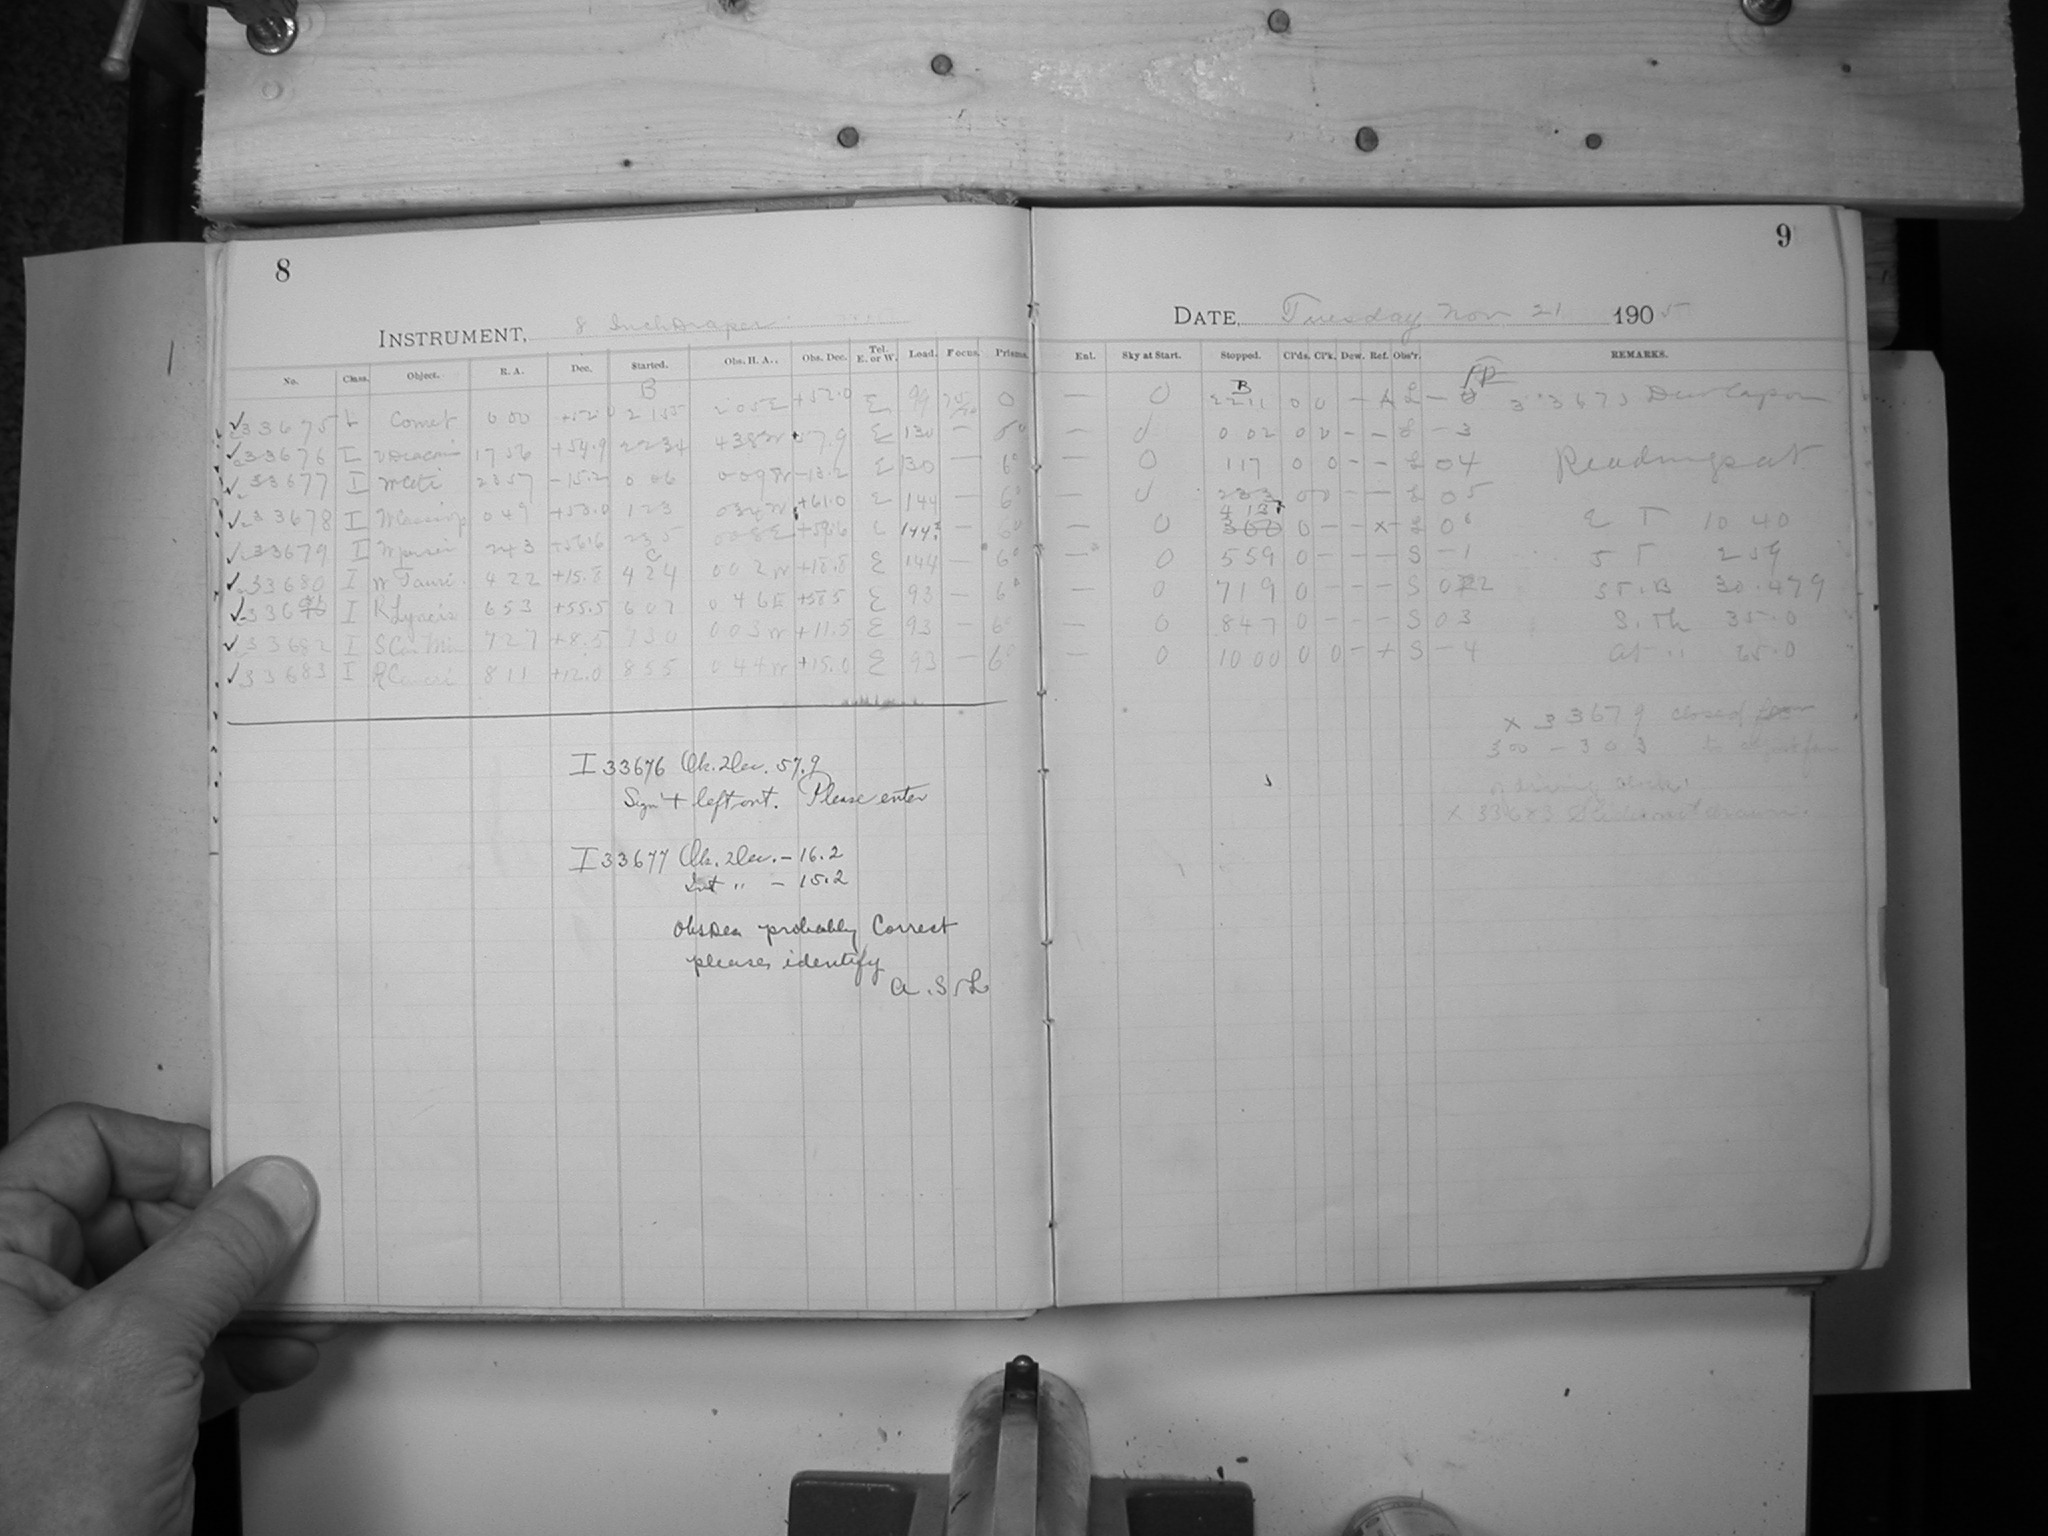 8
INSTRUMENT, 8 Inch Draper
No. Class. Object. R. A. Dec. Started. Obs. H. A. Obs. Dec. Tel. E. or W. Load. Focus. Prisms.
B
33675 L Comet 0 00 +52.0 21 55 2 05 E +52.0 E 99 0
33676 I 17 56 +54.9 22 34 4 38 W +57.9 E 130 —
33677 I W Ceti 23 57 -15.2 0 06 0 09 W E 130 — 6°
33678 I 0 49 +53.0 1 23 0 34 W +61.0 E 144 — 6°
33679 I 2 43 +56.6 2 35 0 08 E E 144 — 6°
33680 I W Tauri 4 22 +15.8 4 24 0 02 W +18.8 E 144 — 6°
I R Lyncis 6 53 +55.5 6 07 0 46 E +58.5 E 93 — 6°
33682 I S Can Min 7 27 +8.5 7 30 0 03 W +11.5 E 93 — 6°
33683 I R Cancri 8 11 +12.0 8 55 0 44 W +15.0 E 93 — 6°
I 33676 Ob. Dec. 57.9
Sign + left out. Please enter
I 33677 Ob. Dec. - 16.2
Int " - 15.2
Obs Dec probably Correct
please identify
A. S. L
9
DATE, Tuesday Nov 21 1905
Enl. Sky at Start. Stopped. Cl'ds. Cl'k. Dew. Ref. Obs'r. REMARKS.
B
— 0 22 11 0 0 — L 33675 Dew Cap on
— 0 0 02 0 0 - - L - 3
— 0 1 17 0 0 - - L 0 4 Readings at
— 0 2 33 0 0 - - L 0 5
4 13
— 0 0 - - x L 0 6 E T 10 40
— 0 5 59 0 - - - S - 1 S T 2 59
— 0 7 19 0 - - - S 0 2 St. B 30.479
— 0 8 47 0 - - - S 0 3 S. Th 35.0
— 0 10 00 0 0 - + S - 4 At " 65.0
x 33679 closed from
3 00 - 3 03 to
driving clock.
x 33683 Slide not drawn.